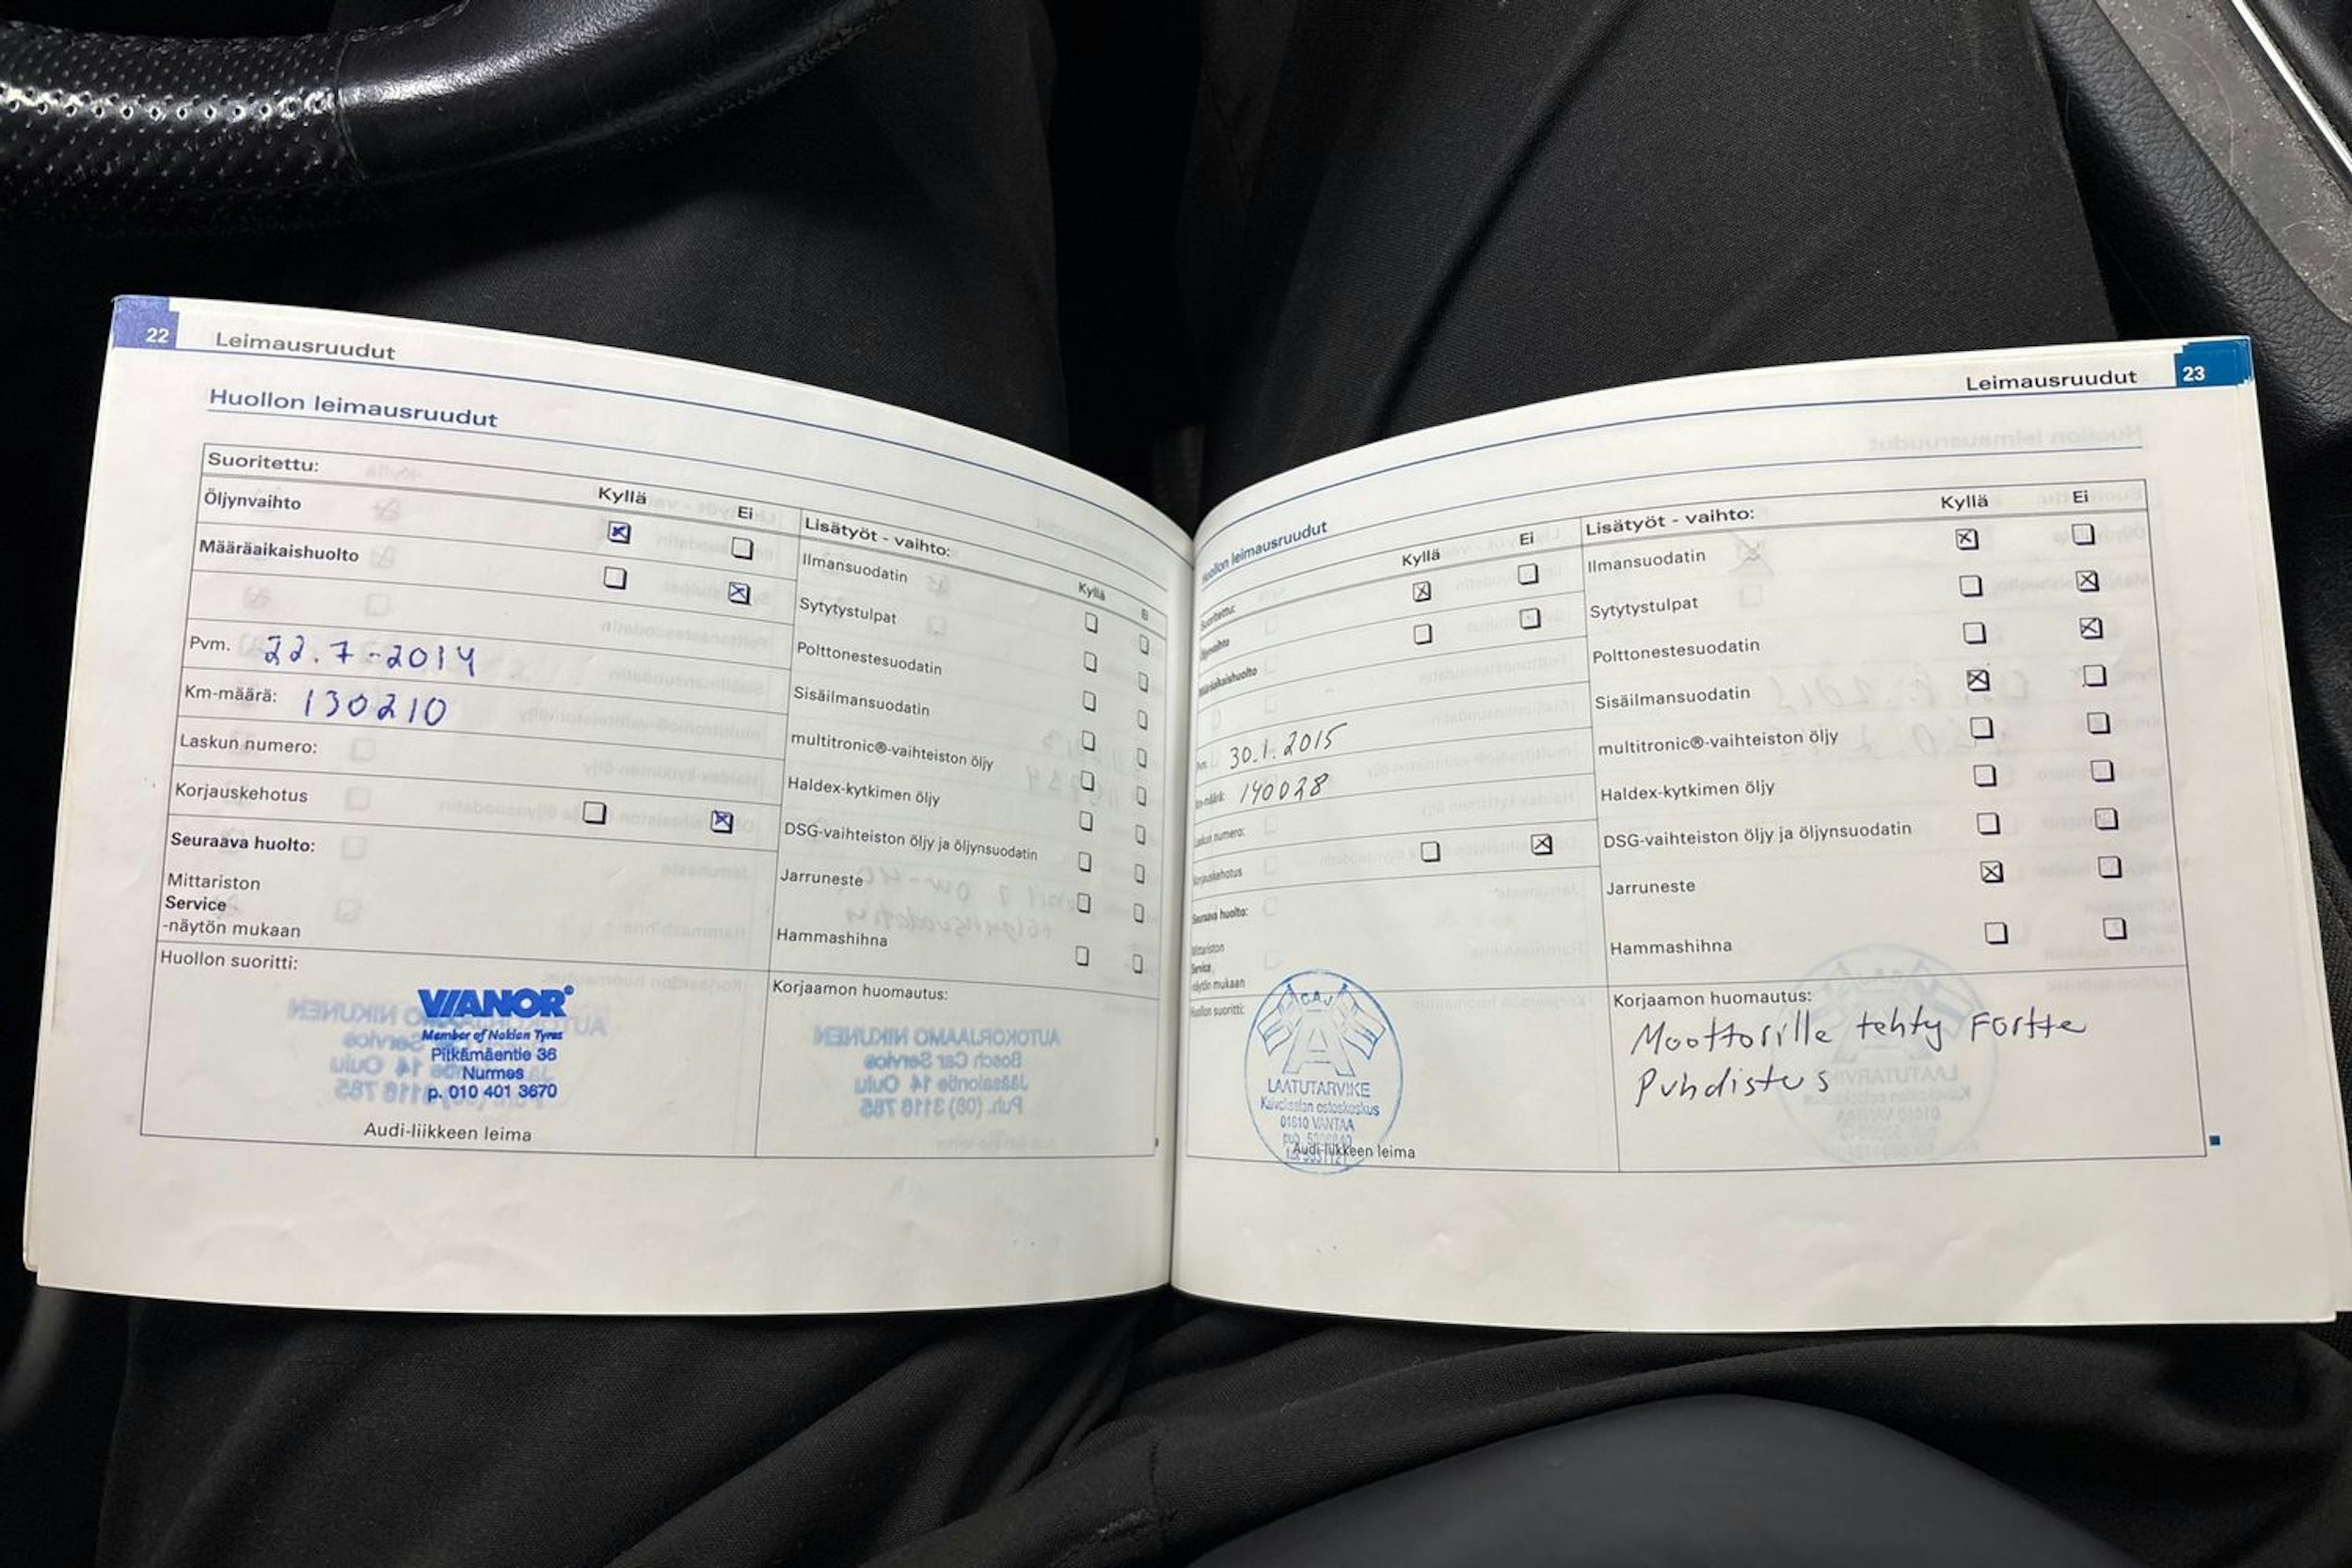 22
Leimausruudut
Huollon leimausruudut
Suoritettu:
Kyllä Ei
Öljynvaihto
Määräaikaishuolto
Pvm. 22.7-2014
Km-määrä: 130210
Laskun numero:
Korjauskehotus
Seuraava huolto:
Mittariston
Service
-näytön mukaan
Huollon suoritti:
VIANOR®
Member of Nokian Tyres
Pitkämäentie 36
Nurmes
p. 010 401 3670
Audi-liikkeen leima
Lisätyöt - vaihto:
Kyllä Ei
Ilmansuodatin
Sytytystulpat
Polttonestesuodatin
Sisäilmansuodatin
multitronic®-vaihteiston öljy
Haldex-kytkimen öljy
DSG-vaihteiston öljy ja öljynsuodatin
Jarruneste
Hammashihna
Korjaamon huomautus:
Leimausruudut
23
Huollon leimausruudut
Suoritettu:
Kyllä Ei
Öljynvaihto
Määräaikaishuolto
Pvm. 30.1.2015
Km-määrä: 140028
Laskun numero:
Korjauskehotus
Seuraava huolto:
Mittariston
Service
-näytön mukaan
Huollon suoritti:
CAJ
LAATUTARVIKE
Kaivokselan ostoskeskus
01610 VANTAA
Audi-liikkeen leima
Lisätyöt - vaihto:
Kyllä Ei
Ilmansuodatin
Sytytystulpat
Polttonestesuodatin
Sisäilmansuodatin
multitronic®-vaihteiston öljy
Haldex-kytkimen öljy
DSG-vaihteiston öljy ja öljynsuodatin
Jarruneste
Hammashihna
Korjaamon huomautus:
Moottorille tehty Fortte
Puhdistus